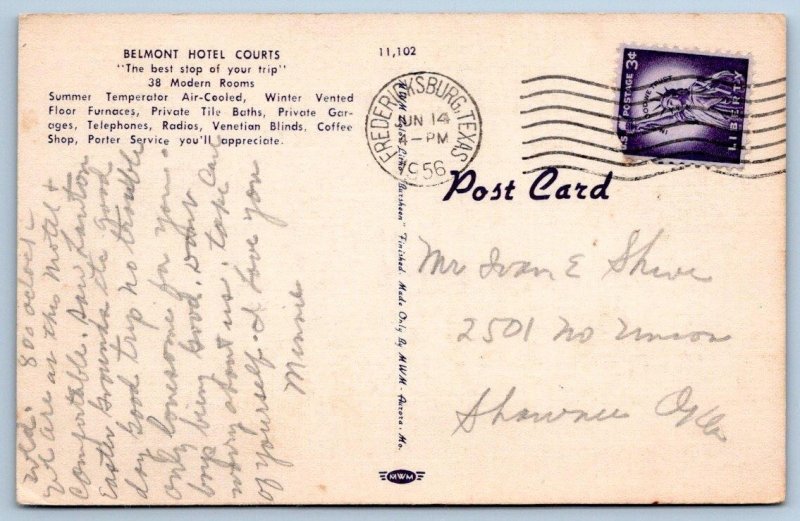 BELMONT HOTEL COURTS
"The best stop of your trip"
38 Modern Rooms
Summer Temperator Air-Cooled, Winter Vented
Floor Furnaces, Private Tile Baths, Private Gar-
ages, Telephones, Radios, Venetian Blinds, Coffee
Shop, Porter Service you'll appreciate.
Wed. 8 oo oclock
We are at this Motel &
Comfortable. Saw Lawton
Easter grounds its good
day good trip no trouble
only lonesome for you.
being good. Dont
worry about us, take care
of yourself. I love you
Minnie
11,102
FREDERICKSBURG, TEXAS
JUN 14
PM
1956
U.S. POSTAGE 3¢
IN GOD WE TRUST
LIBERTY
Post Card
"Bursheen" Finished. Made Only By MWM - Aurora, Mo.
MWM
Mr Ivan E Shive
2501 No Union
Shawnee Okla